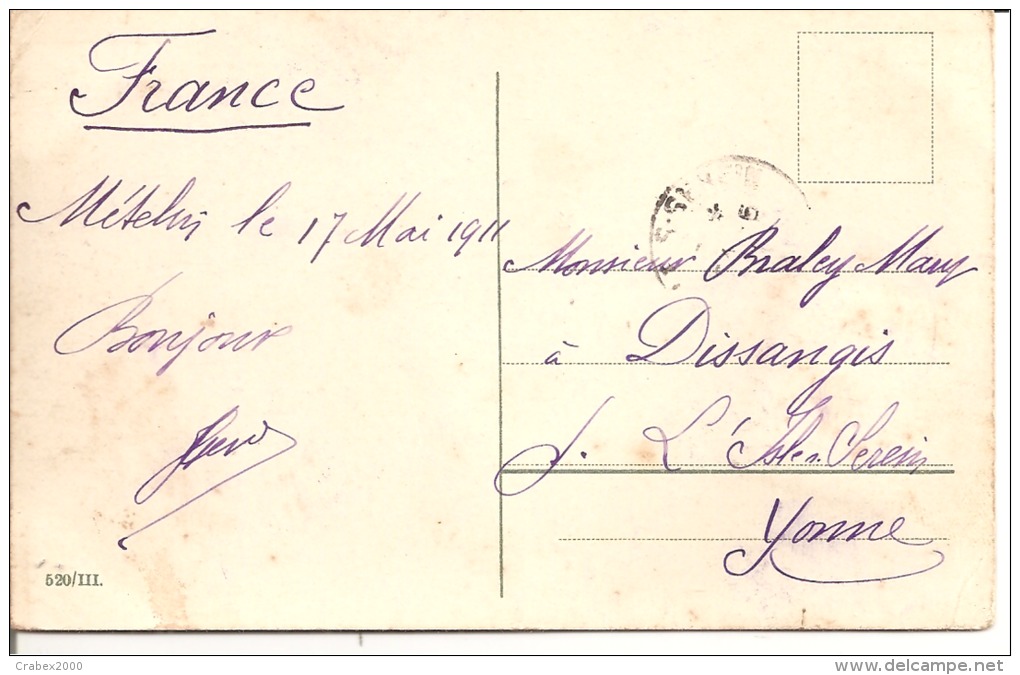 France
Mételin le 17 Mai 1911
Bonjour
520/III.
Monsieur Braley Mary
à Dissangis
L'Isle s. Serein
Yonne
Crabex2000
www.delcampe.net